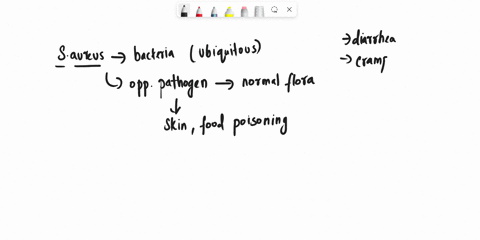 S.aureus → bacteria (ubiquitous)
↳ opp. pathogen → normal flora
↓
skin, food poisoning
→ diarrhea
→ cramp